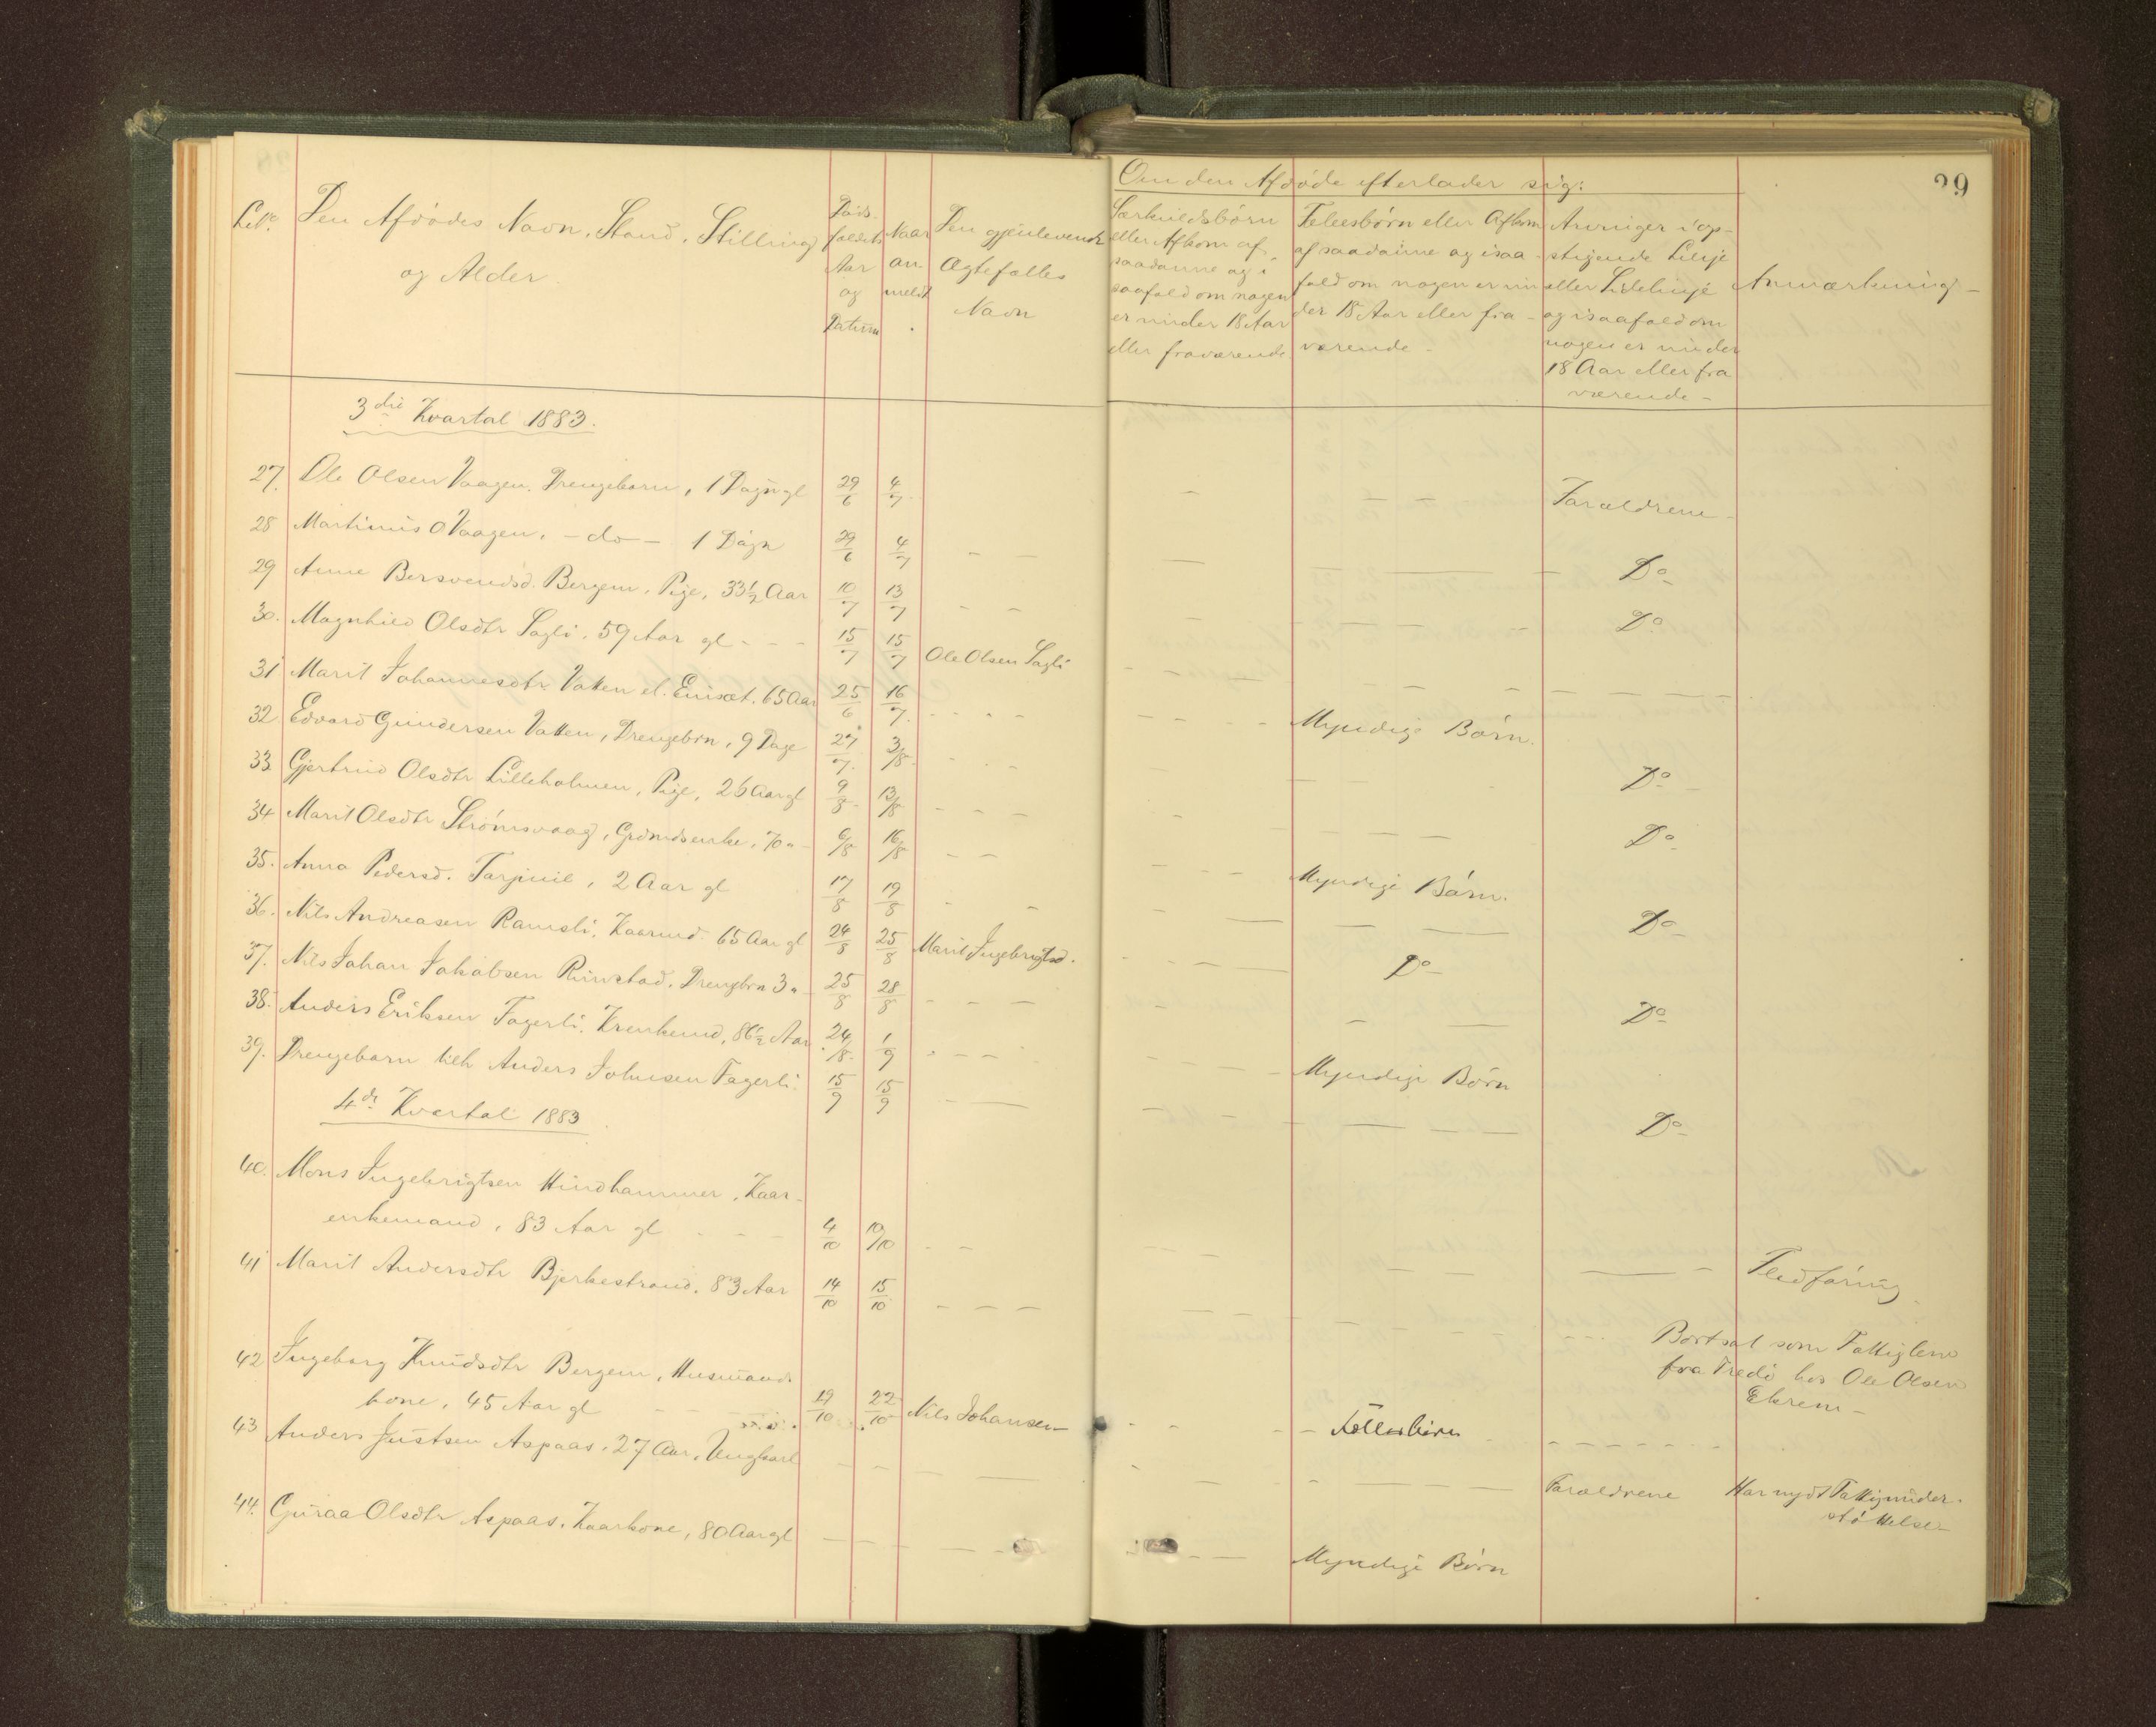 29
Den Afdødes Navn, Stand, Stilling
og Alder
Døds-
faldets
Aar
og
Datum
Naar
an
meldt
Den gjenlevende
Ægtefælles
Navn
Om den Afdøde efterlader sig:
Særkuldsbørn
eller Afkom af
saadanne og i
saafald om nogen
er under 18 Aar
eller fraværende.
Fellesbørn eller Afkom
af saadanne og isaa-
fald om nogen er un
der 18 Aar eller fra-
værende -
Arvinger i op-
stigende Linje
eller Sidelinje
og isaafald om
nogen er under
18 Aar eller fra
værende -
Anmærkning -
3die Kvartal 1883.
27. Ole Olsen Vaagen, Drengebarn, 1 Døgn gl 29/6 4/7 Forældrene -
28 Martinus O Vaagen, - do - 1 Døgn 29/6 4/7 Do
29 Anne Bersvendsd. Bergem, Pige, 33½ Aar 10/7 13/7 Do
30. Magnhild Olsdtr Sagli, 59 Aar gl - - - 15/7 15/7 Ole Olsen Sagli
31 Marit Johannesdtr Vatten el. Eniset, 65 Aar 25/6 16/7 Myndige Børn.
32 Edvard Gundersen Vatten, Drengebrn, 9 Dage 27/7 3/8 Do
33 Gjertrud Olsdtr Lilleholmen, Pige, 26 Aar gl 9/8 13/8 Do
34 Marit Olsdtr Strømsvaag, Grdmdsenke, 70 " 6/8 16/8 Myndige Børn.
35. Anna Pedersd. Torjuul, 2 Aar gl 17/8 19/8 Do
36. Nils Andreasen Ramsli, Kaarmd. 65 Aar gl 24/8 25/8 Marit Ingebrigtsd. Do
37. Nils Johan Jakobsen Rimstad, Drengbrn 3 " 25/8 28/8 Do
38. Anders Eriksen Fagerli, Enkemd, 86½ Aar 24/8 1/9 Myndige Børn
39. Drengebarn tilh Anders Johnsen Fagerli. 15/9 15/9 Do
4de Kvartal 1883
40. Mons Ingebrigtsen Hindhammer, Kaar-
enkemand, 83 Aar gl - - - 4/10 10/10 Fledføring
41 Marit Andersdtr Bjerkestrand, 83 Aar 14/10 15/10 Bortsat som Fattiglem
fra Tredø hos Ole Olsen
Ekrem -
42 Ingeborg Knudsdtr Bergem, Husmands
kone, 45 Aar gl 19/10 22/10 Nils Johansen Fellesbørn
43 Anders Justsen Aspaas, 27 Aar, Ungkarl Forældrene Har nydt Fattigunder-
støttelse -
44. Guraa Olsdtr Aspaas, Kaarkone, 80 Aar gl Myndige Børn